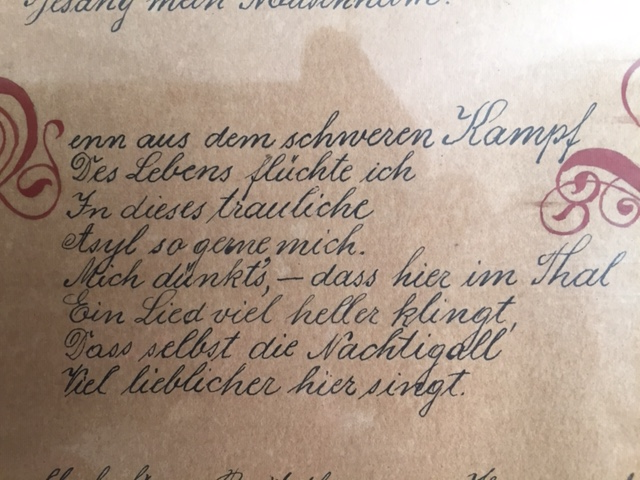 Gesang mein
enn aus dem schweren Kampf
Des Lebens flüchte ich
In dieses trauliche
Asyl so gerne mich.
Mich dünkt's, — dass hier im Thal
Ein Lied viel heller klingt,
Dass selbst die Nachtigall
Viel lieblicher hier singt.